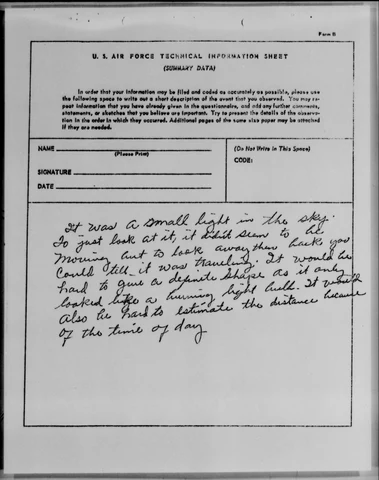 Form B
U. S. AIR FORCE TECHNICAL INFORMATION SHEET
(SUMMARY DATA)
In order that your information may be filed and coded as accurately as possible, please use
the following space to write out a short description of the event that you observed. You may re-
peat information that you have already given in the questionnaire, and add any further comments,
statements, or sketches that you believe are important. Try to present the details of the observa-
tion in the order in which they occurred. Additional pages of the same size paper may be attached
if they are needed.
NAME
(Please Print)
(Do Not Write in This Space)
CODE:
SIGNATURE
DATE
It was a small light in the sky.
To just look at it, it didn't seem to be
moving but to look away then back you
could tell it was traveling. It would be
hard to give a definite shape as it only
looked like a burning light bulb. It would
also be hard to estimate the distance because
of the time of day